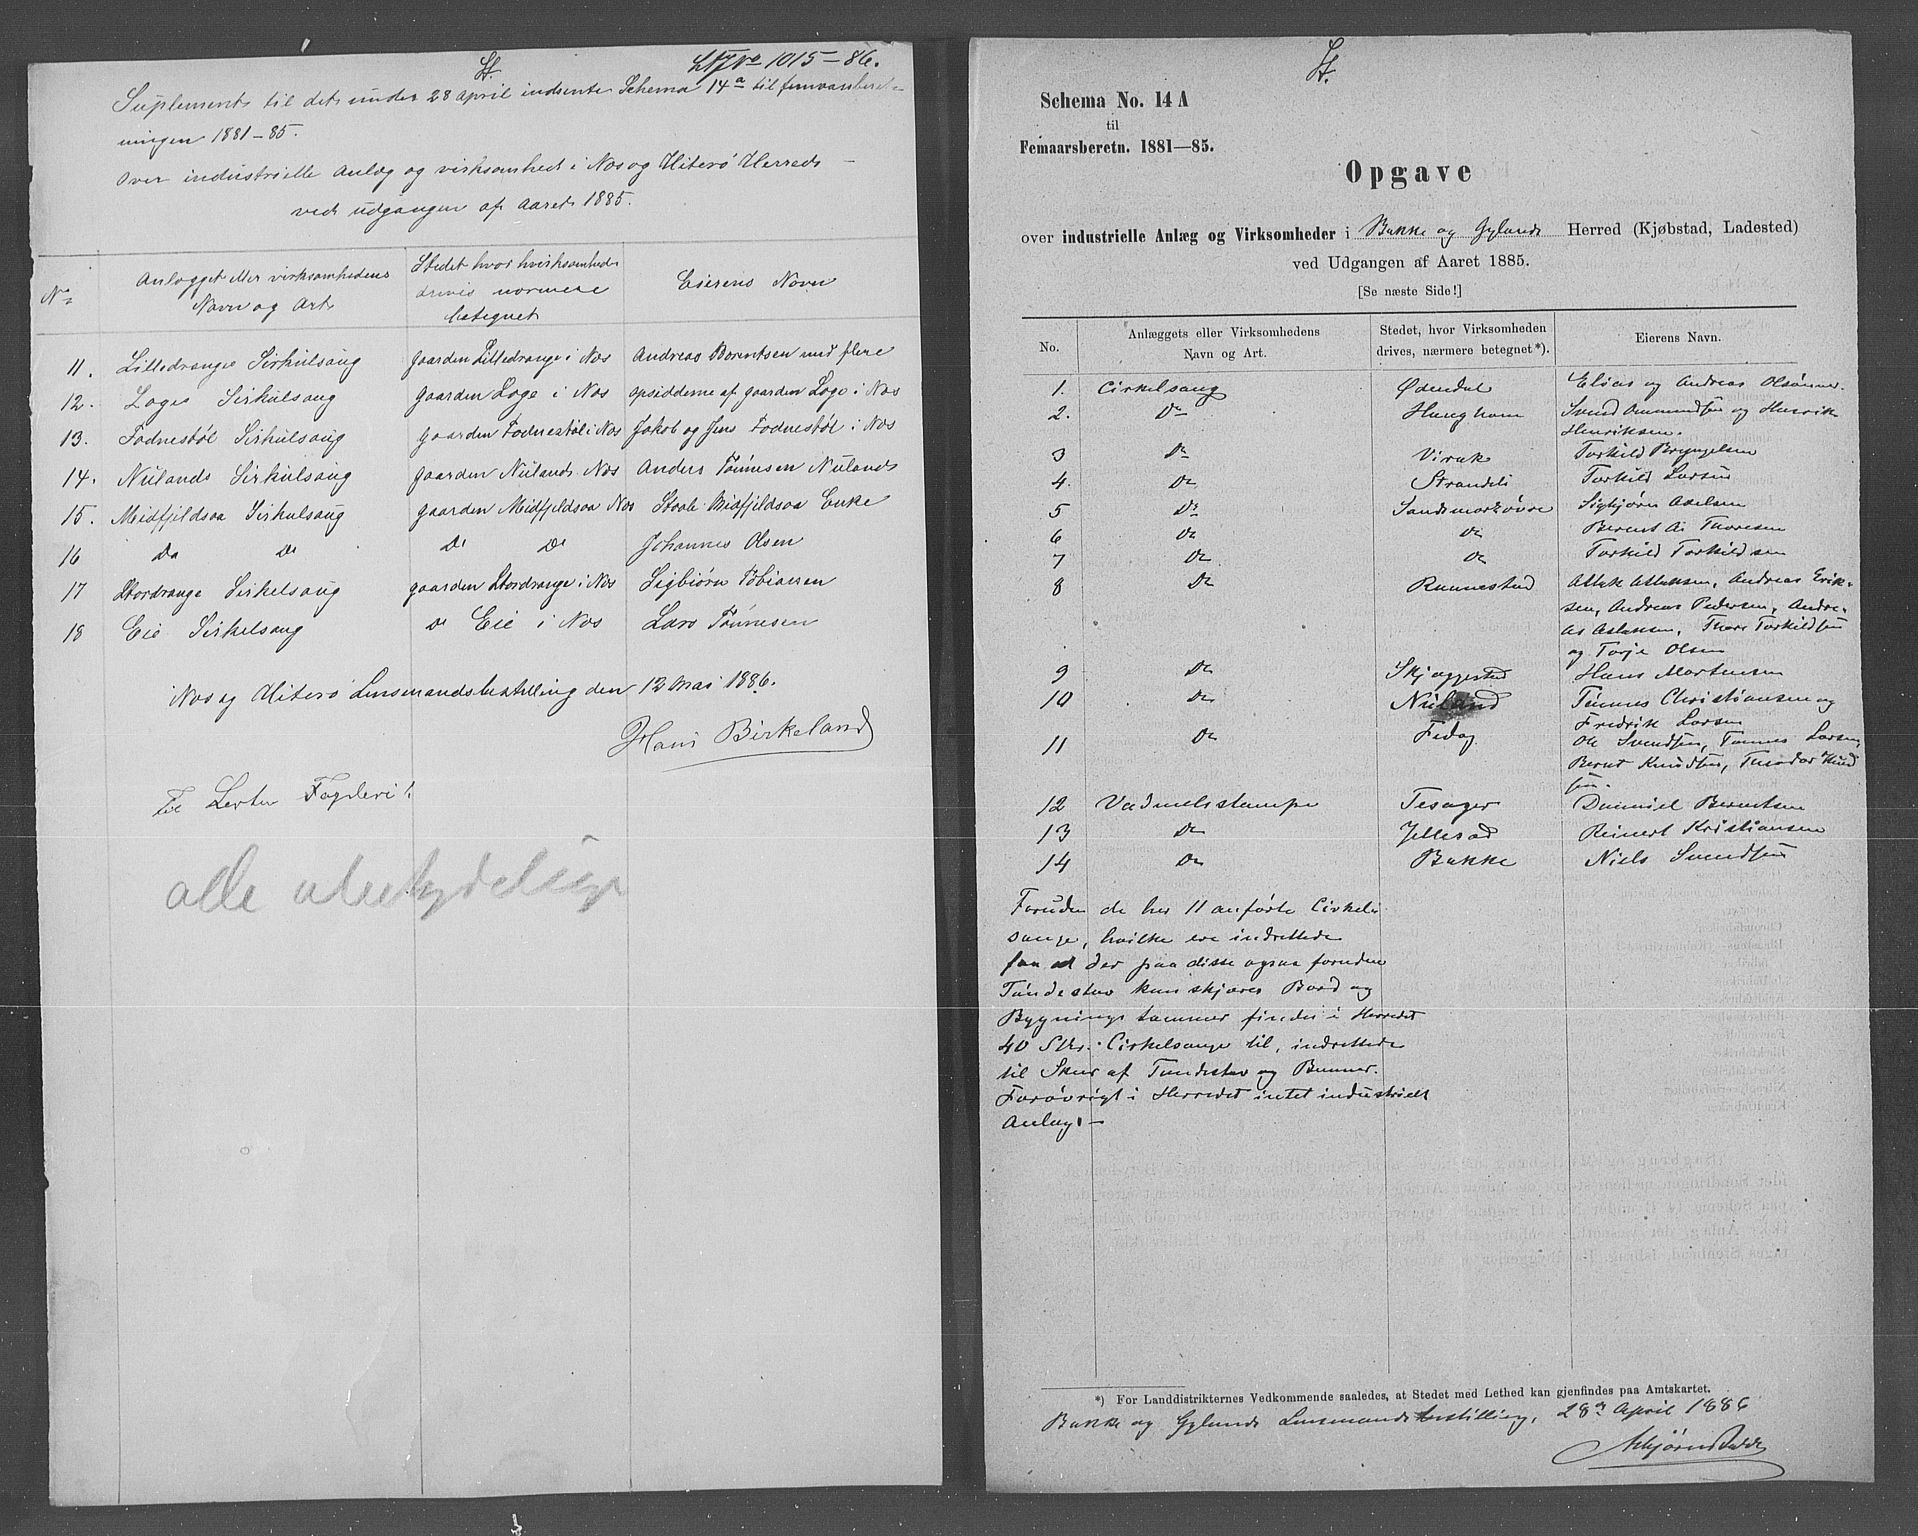 No 1015-86.
Suplement til det under 28 April indsente Schema 14a til femaarsberet-
ningen 1881-85.
over industrielle Anlæg og virksomhed i Nes og Hiterø Herred
ved udgangen af Aaret 1885.
No
Anlægget eller virksomhedens
Navn og Art
Stedet hvor virksomheden
drives nærmere
betegnet
Eierens Navn
11. Lilledrange Sirkulsaug gaarden Lilledrange i Nes Andreas Berentsen med flere
12. Loge Sirkulsaug gaarden Loge i Nes opsidderne af gaarden Loge i Nes
13. Fodnestøl Sirkulsaug gaarden Fodnestøl i Nes Jakob og Jens Fodnestøl i Nes
14. Nulands Sirkulsaug gaarden Nuland Nes Anders Tønnesen Nuland
15. Midfjeldsaa Sirkulsaug gaarden Midfjeldsaa Nes Staale Midfjeldsaa Enke
16 Do Do Do Do Johannes Olsen
17 Stordrange Sirkelsaug gaarden Stordrange i Nes Sigbjørn Tobiassen
18 Eie Sirkelsaug Do Eie i Nes Lars Tønnesen
Nes og Hiterø Lensmandsbestilling den 12 Mai 1886.
Hans Birkeland
Til Lister Fogderi
alle ubetydelige
Schema No. 14 A
til
Femaarsberetn. 1881—85.
Opgave
over industrielle Anlæg og Virksomheder i Bakke og Gylands Herred (Kjøbstad, Ladested)
ved Udgangen af Aaret 1885.
[Se næste Side!]
No.
Anlæggets eller Virksomhedens
Navn og Art.
Stedet, hvor Virksomheden
drives, nærmere betegnet*).
Eierens Navn.
1. Cirkelsaug Ødendal Elias og Andreas Olsønner.
2. Do Haughom Svend Ommundsen og Henrik
Henriksen.
3 Do Virak Torkild Bryngelsen
4. Do Strandli Torkild Larsen
5 Do Sandsmork øvre Sigbjørn Axelsen
6 Do Do Berent A. Thoresen
7 Do Do Torkild Torkildsen
8 Do Runnestad Atlak Aslaksen, Andreas Erik-
sen, Andreas Pedersen, Andre-
as Aslaksen, Thore Torkildsen
og Torje Olsen
9 Do Skjeggestad Hans Mortensen
10 Do Nuland Tønnes Christiansen og
Fredrik Larsen
11 Do Feda Ole Svendsen, Tønnes Larsen,
Bernt Knudsen, Theodor Knud
sen.
12 Vadmelsstampe Tesager Danniel Berntsen
13 Do Jellesad Reinert Kristiansen
14 Do Bakke Niels Svendsen
Foruden de her 11 anførte Cirkel-
sauge, hvilke ere indrettede
saa at der paa disse ogsaa foruden
Tøndestav kan skjæres Bord og
Bygningstømmer findes i Herredet
40 Stkr. Cirkelsauge til, indrettede
til Skur af Tøndestav og Bunner.
Forøvrigt i Herredet intet industrielt
Anlæg.-
*) For Landdistrikternes Vedkommende saaledes, at Stedet med Lethed kan gjenfindes paa Amtskartet.
Bakke og Gylands Lensmandsbestilling, 28de April 1886